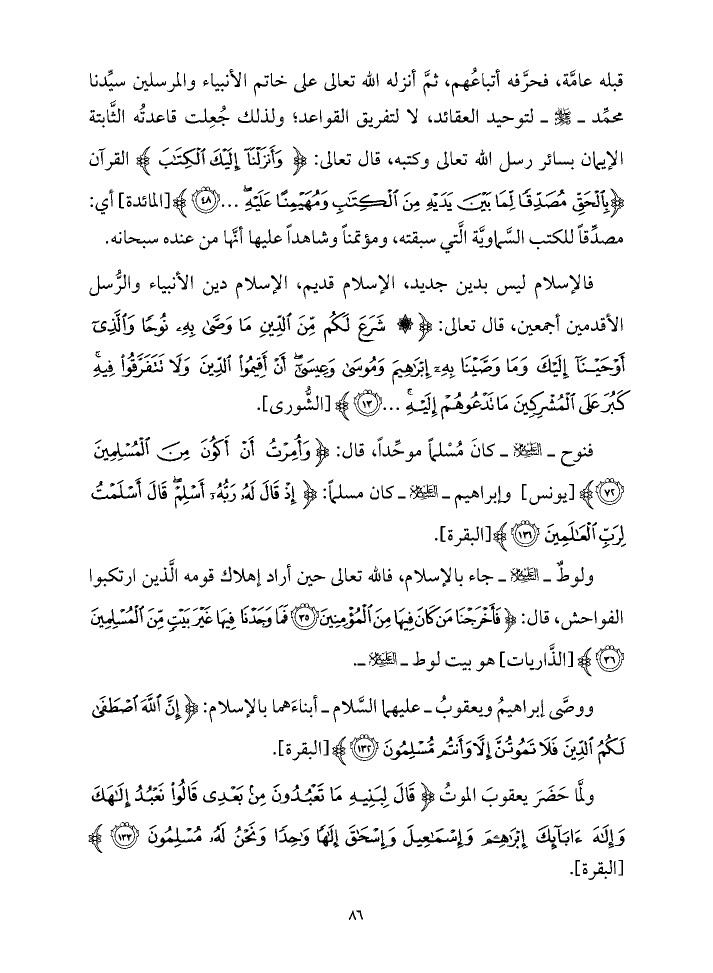 قبله عامَّة، فحرَّفه أتباعُهم، ثمَّ أنزله الله تعالى على خاتم الأنبياء والمرسلين سيِّدنا
محمِّد ـ ﷺ ـ لتوحيد العقائد، لا لتفريق القواعد؛ ولذلك جُعِلت قاعدتُه الثَّابتة
الإيمان بسائر رسل الله تعالى وكتبه، قال تعالى: ﴿ وَأَنزَلْنَآ إِلَيْكَ ٱلْكِتَٰبَ ﴾ القرآن
﴿بِٱلْحَقِّ مُصَدِّقًا لِّمَا بَيْنَ يَدَيْهِ مِنَ ٱلْكِتَٰبِ وَمُهَيْمِنًا عَلَيْهِ ۖ ... ٤٨ ﴾ [المائدة] أي:
مصدِّقاً للكتب السَّماويَّة الَّتي سبقته، ومؤتمناً وشاهداً عليها أنَّها من عنده سبحانه.
فالإسلام ليس بدين جديد، الإسلام قديم، الإسلام دين الأنبياء والرُّسل
الأقدمين أجمعين، قال تعالى: ﴿ ۞ شَرَعَ لَكُم مِّنَ ٱلدِّينِ مَا وَصَّىٰ بِهِۦ نُوحًا وَٱلَّذِىٓ
أَوْحَيْنَآ إِلَيْكَ وَمَا وَصَّيْنَا بِهِۦٓ إِبْرَٰهِيمَ وَمُوسَىٰ وَعِيسَىٰٓ ۖ أَنْ أَقِيمُوا۟ ٱلدِّينَ وَلَا تَتَفَرَّقُوا۟ فِيهِ ۚ
كَبُرَ عَلَى ٱلْمُشْرِكِينَ مَا تَدْعُوهُمْ إِلَيْهِ ۚ ... ١٣ ﴾ [الشُّورى].
فنوح ـ ﵇ ـ كانَ مُسْلماً موحِّداً، قال: ﴿ وَأُمِرْتُ أَنْ أَكُونَ مِنَ ٱلْمُسْلِمِينَ
٧٢ ﴾ [يونس] وإبراهيم ـ ﵇ ـ كان مسلماً: ﴿ إِذْ قَالَ لَهُۥ رَبُّهُۥٓ أَسْلِمْ ۖ قَالَ أَسْلَمْتُ
لِرَبِّ ٱلْعَٰلَمِينَ ١٣١ ﴾ [البقرة].
ولوطٌ ـ ﵇ ـ جاء بالإسلام، فالله تعالى حين أراد إهلاك قومه الَّذين ارتكبوا
الفواحش، قال: ﴿ فَأَخْرَجْنَا مَن كَانَ فِيهَا مِنَ ٱلْمُؤْمِنِينَ ٣٥ فَمَا وَجَدْنَا فِيهَا غَيْرَ بَيْتٍ مِّنَ ٱلْمُسْلِمِينَ
٣٦ ﴾ [الذَّاريات] هو بيت لوط ـ ﵇ ـ.
ووصَّى إبراهيمُ ويعقوبُ ـ عليهما السَّلام ـ أبناءَهما بالإسلام: ﴿ إِنَّ ٱللَّهَ ٱصْطَفَىٰ
لَكُمُ ٱلدِّينَ فَلَا تَمُوتُنَّ إِلَّا وَأَنتُم مُّسْلِمُونَ ١٣٢ ﴾ [البقرة].
ولمَّا حَضَرَ يعقوبَ الموتُ ﴿ قَالَ لِبَنِيهِ مَا تَعْبُدُونَ مِنۢ بَعْدِى قَالُوا۟ نَعْبُدُ إِلَٰهَكَ
وَإِلَٰهَ ءَابَآئِكَ إِبْرَٰهِۦمَ وَإِسْمَٰعِيلَ وَإِسْحَٰقَ إِلَٰهًا وَٰحِدًا وَنَحْنُ لَهُۥ مُسْلِمُونَ ١٣٣ ﴾
[البقرة].
٨٦